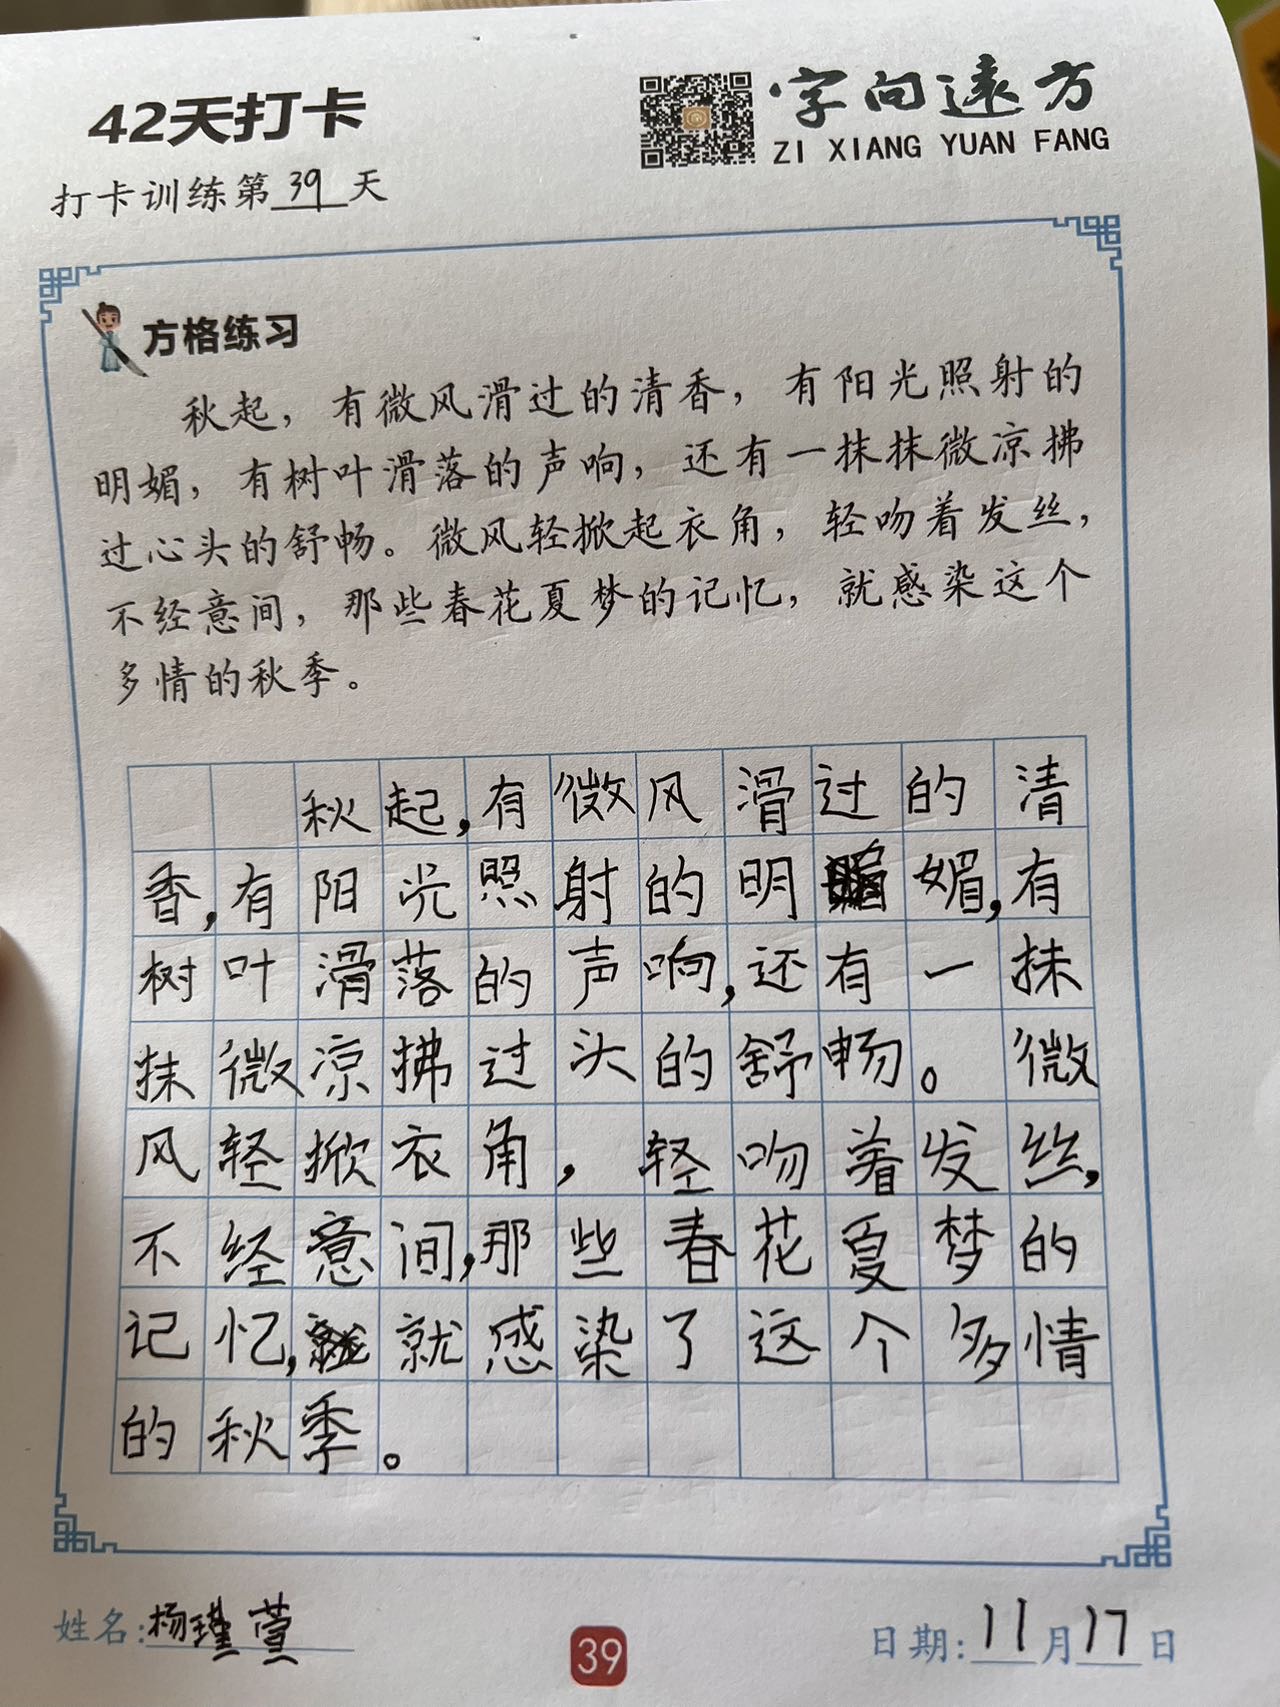 42天打卡
字向远方
ZI XIANG YUAN FANG
打卡训练第39天
方格练习
秋起，有微风滑过的清香，有阳光照射的
明媚，有树叶滑落的声响，还有一抹抹微凉拂
过心头的舒畅。微风轻掀起衣角，轻吻着发丝，
不经意间，那些春花夏梦的记忆，就感染这个
多情的秋季。
秋起，有微风滑过的清
香，有阳光照射的明媚，有
树叶滑落的声响，还有一抹
抹微凉拂过头的舒畅。微
风轻掀衣角，轻吻着发丝，
不经意间，那些春花夏梦的
记忆，就感染了这个多情
的秋季。
姓名：杨瑾萱
39
日期：11月17日